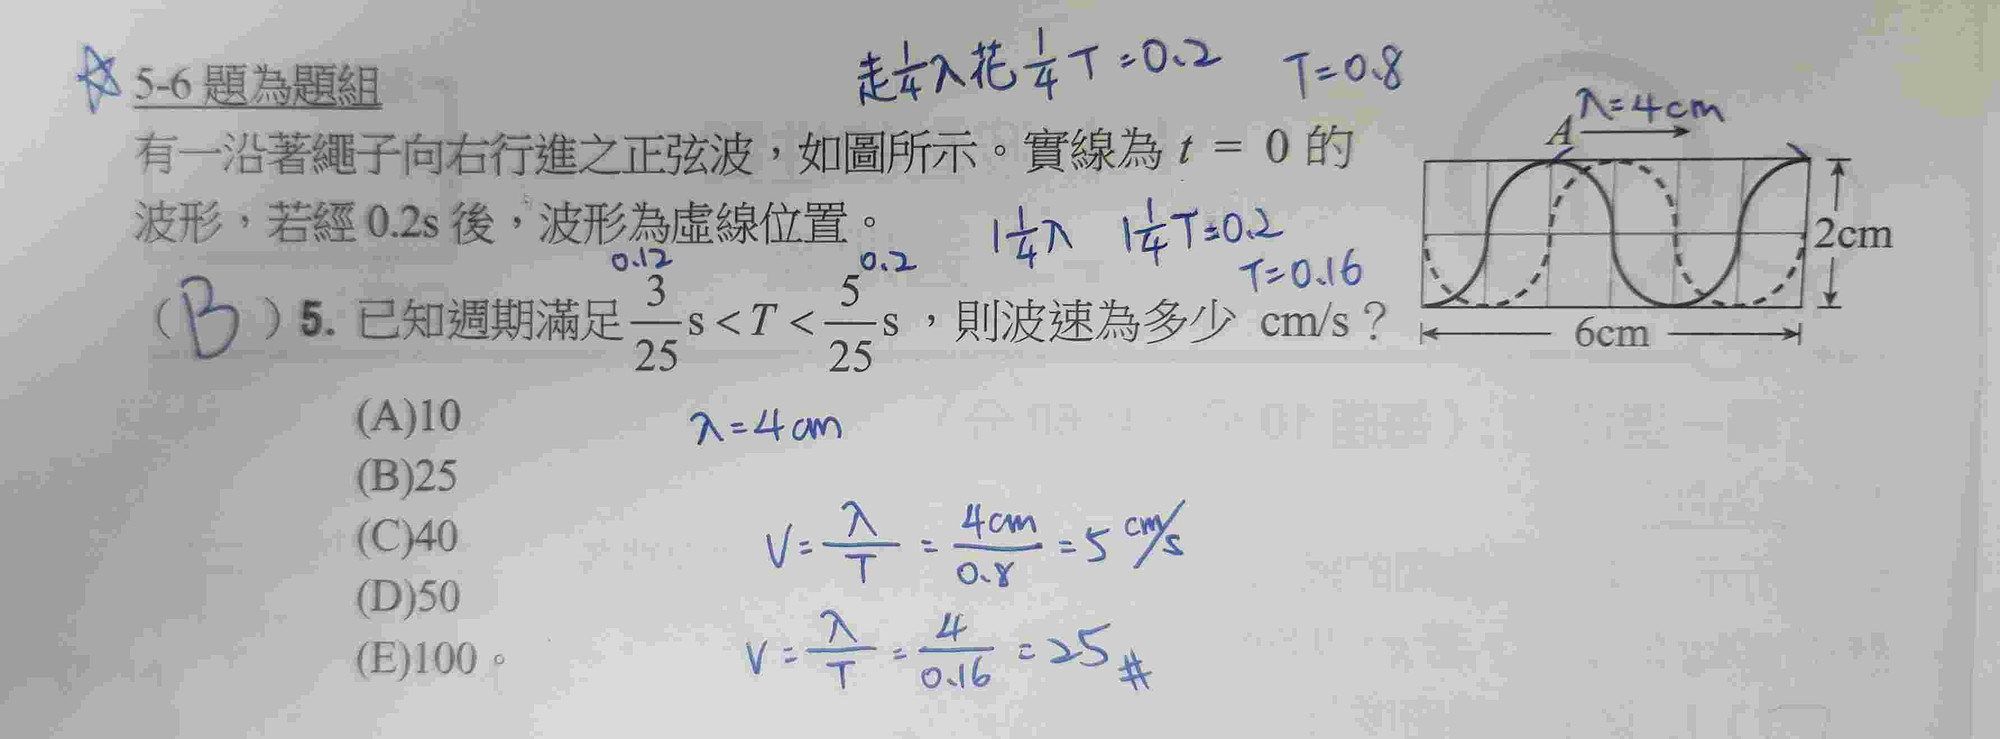 走1/4λ花1/4T=0.2 T=0.8
☆ 5-6 題為題組
λ=4cm
A
有一沿著繩子向右行進之正弦波，如圖所示。實線為 t = 0 的
波形，若經 0.2s 後，波形為虛線位置。
1 1/4 λ 1 1/4 T=0.2
T=0.16
2cm
6cm
0.12 0.2
(B) 5. 已知週期滿足 3/25 s < T < 5/25 s，則波速為多少 cm/s？
(A)10
λ=4cm
(B)25
(C)40
V=λ/T=4cm/0.8=5 cm/s
(D)50
(E)100。
V=λ/T=4/0.16=25#